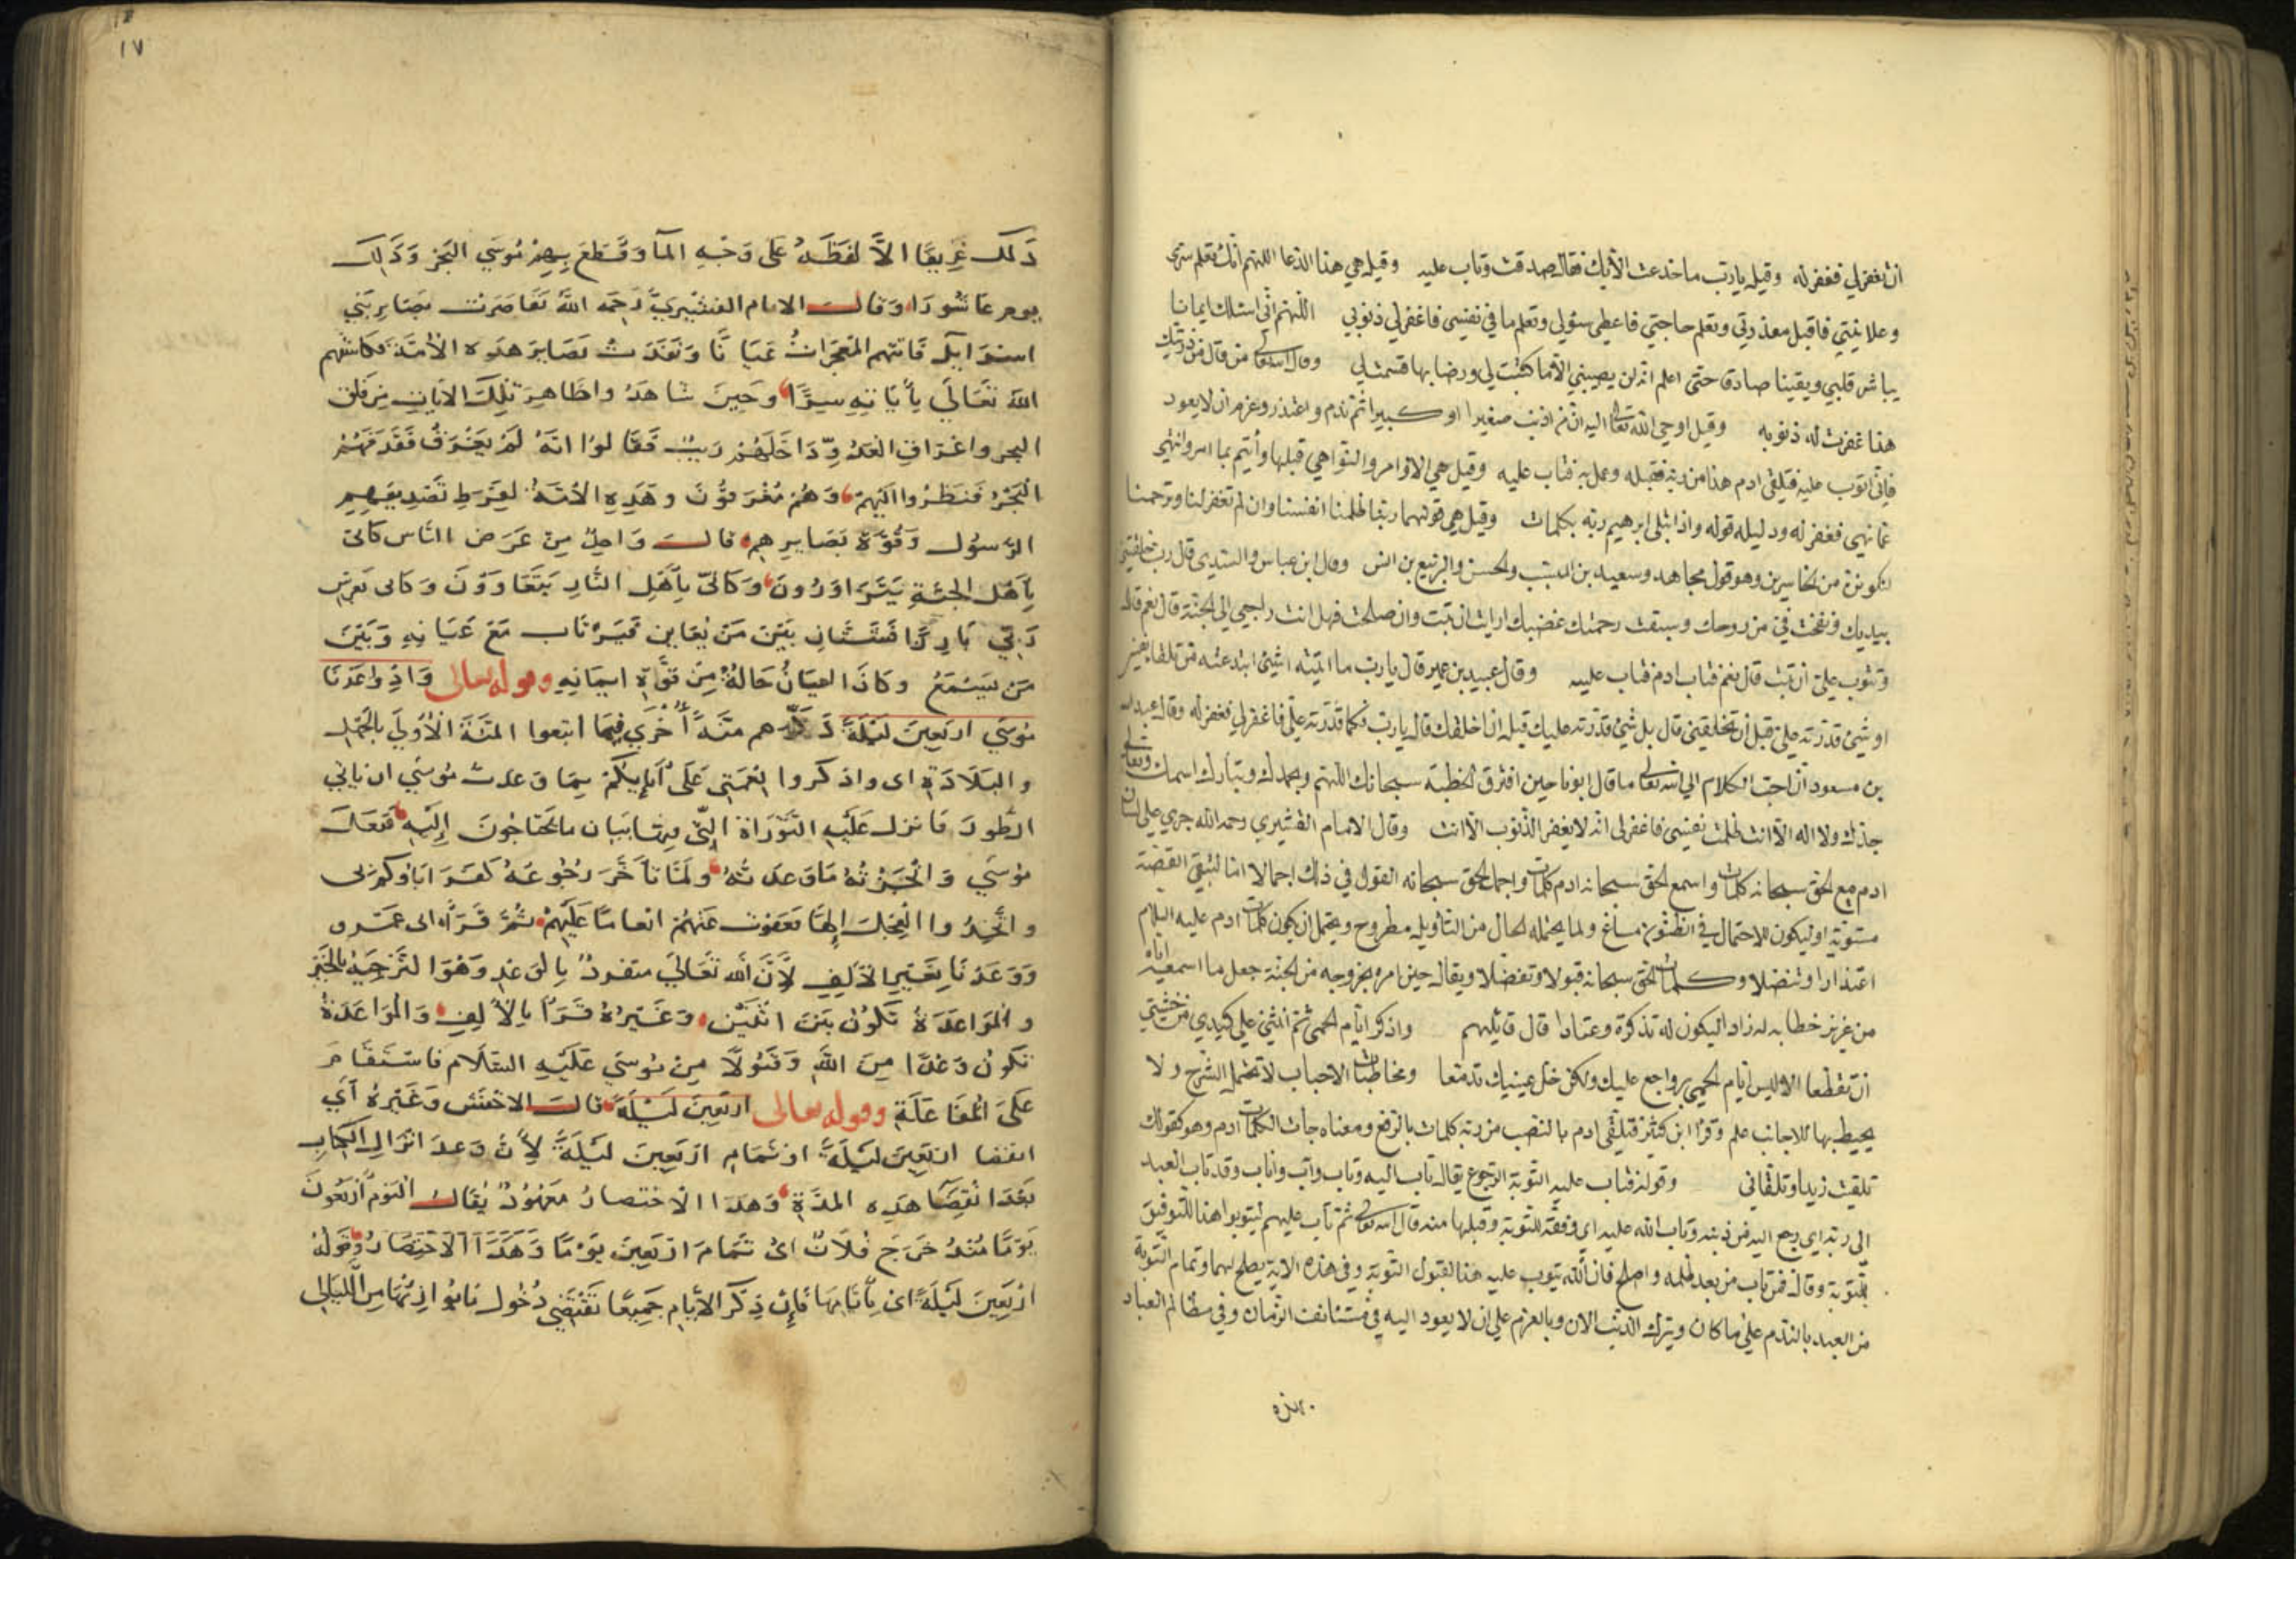 ان تغفر لي فغفر له وقيل يا رب ما خدعت الا بك فقال صدقت وتاب عليه وقيل هي هذا الدعا اللهم انك تعلم سري
وعلانيتي فاقبل معذرتي وتعلم حاجتي فاعطي سؤلي وتعلم ما في نفسي فاغفر لي ذنوبي اللهم اني اسئلك ايمانا
يباشر قلبي ويقينا صادقا حتى اعلم انه لن يصيبني الا ما كتبت لي ورضا بها قسمت لي وقال الله تعالى من قال من ذريتك
هذا غفرت له ذنوبه وقيل اوحى الله تعالى اليه ان من اذنب صغيرا او كبيرا ثم ندم واعتذر وعزم ان لا يعود
فاني اتوب عليه فتلقى ادم هذا من ربه فقبله وعمل به فتاب عليه وقيل هي الاوامر والنواهي قبلها وأتم بما امر وانتهى
عما نهي فغفر له ودليله قوله واذ ابتلى ابرهيم ربه بكلمات وقيل هي قولهما ربنا ظلمنا انفسنا وان لم تغفر لنا وترحمنا
لنكونن من الخاسرين وهو قول مجاهد وسعيد بن المسيب والحسن والربيع بن انس وقال ابن عباس والسدي قال رب خلقتني
بيديك ونفخت في من روحك وسبقت رحمتك غضبك ارايت ان تبت وان صلحت فهل انت راجعي الى الجنة قال نعم قال
وتتوب علي ان تبت قال نعم فتاب ادم فتاب عليه وقال عبيد بن عمير قال يا رب ما اتيته اشيئ ابتدعته من تلقا نفسي
او شيئ قدرته علي قبل ان تخلقني قال بل شيئ قدرته عليك قبل ان اخلقك قال يا رب فكما قدرته علي فاغفر لي فغفر له وقال عبد الله
بن مسعود ان احب الكلام الى الله تعالى ما قال ابونا حين اقترف الخطية سبحانك اللهم وبحمدك وتبارك اسمك وتعالى
جدك ولا اله الا انت ظلمت نفسي فاغفر لي انه لا يغفر الذنوب الا انت وقال الامام القشيري رحمه الله جرى على لسان
ادم مع الحق سبحانه كلمات واسمع الحق سبحانه ادم كلمات واجمل الحق سبحانه القول في ذلك اجمالا اما لتبقى القصة
مستورة او ليكون للاحتمال في الظنون مساغ ولما يحتمله الحال من التاويل مطروح ويحتمل ان يكون كلمات ادم عليه السلام
اعتذارا وتنصلا وكلمات الحق سبحانه قبولا وتفضلا ويقال حين امره بخروجه من الجنة جعل ما اسمعه اياه
من عزيز خطابه له زادا ليكون له تذكرة وعتادا قال قائلهم واذكر ايام الحمى ثم انثني على كبدي من خشيتي
ان تقطعا الا ليس ايام الحمى برواجع عليك ولكن خل عينيك تدمعا ومخاطبات الاحباب لا تحتمل الشرح ولا
يحيط بها للاجانب علم وقرا ابن كثير فتلقى ادم بالنصب من ربه كلمات بالرفع ومعناه جات الكلمات ادم وهو كقولك
تلقيت زيدا وتلقاني وقوله فتاب عليه التوبة الرجوع يقال تاب اليه وتاب واب واناب وقد تاب العبد
الى ربه اي رجع اليه من ذنبه وتاب الله عليه اي وفقه للتوبة وقبلها منه قال الله تعالى ثم تاب عليهم ليتوبوا هذا للتوفيق
للتوبة وقال فمن تاب من بعد ظلمه واصلح فان الله يتوب عليه هذا لقبول التوبة وفي هذه الاية يصلح لهما وتمام التوبة
من العبد بالندم على ما كان وبترك الذنب الان وبالعزم على ان لا يعود اليه في مستانف الزمان وفي مظالم العباد
١٧
ذلك غريقا الا لفظه على وجه المآ وقطع بهم موسى البحر وذلك
يوم عاشورا وقال الامام القشيري رحمه الله تقاصرت بصاير بني
اسرايل فاتتهم المعجزات عيانا ونفدت بصاير هذه الامة فكاشفهم
الله تعالى بأياته سرا وحين شاهدوا ظاهر تلك الايات من فلق
البحر واغراق العدو داخلهم ريب فقالوا انه لم يغرق فقذفهم
البحر فنظروا اليهم وهم مغرقون وهذه الامة لفرط تصديقهم
الرسول وقوة بصايرهم قال واحد من عرض الناس كاني
بأهل الجنة يتزاورون وكاني بأهل النار يتعاوون وكاني بعرش
ربي بارزا فشتان بين من يعاين فيرتاب مع عيانه وبين
من يسمع وكاذا العيان حاله من قوة ايمانه وقوله تعالى واذ واعدنا
موسى اربعين ليلة ذكرهم منة أخرى فيما اتبعوا المنة الأولى بالجهل
والبلادة اى واذكروا نعمتى على أبايكم بما وعدت موسى ان ياتي
الطور فانزل عليه التوراة التي فيها بيان ما يحتاجون إليه ففعل
موسى وانجزته ما وعدته ولما تأخر رجوعه كفر اباوكم بى
واتخذوا العجل إلها فعفوت عنهم انعاما عليهم ثم قرأ ابى عمرو
ووعدنا بغير الالف لأن الله تعالى متفرد بالوعد وهوا لترجيه بالخير
والمواعدة تكون بين اثنين وغيره قرأ بالألف والمواعدة
تكون وعدا من الله وقبولا من موسى عليه السلام فاستقام
على المفاعلة وقوله تعالى اربعين ليلة قال الاخفش وغيره أي
انقضا اربعين ليلة او تمام اربعين ليلة لأن وعد انزال الكتاب
بعد انقضا هذه المدة وهذا الاختصار معهود يقال اليوم أربعون
يوما منذ خرج فلان اى تمام اربعين يوما وهذا الاختصار وقوله
اربعين ليلة اى بأيامها فإن ذكر الأيام جميعا تقتضي دخول مابوازنها من الليالى